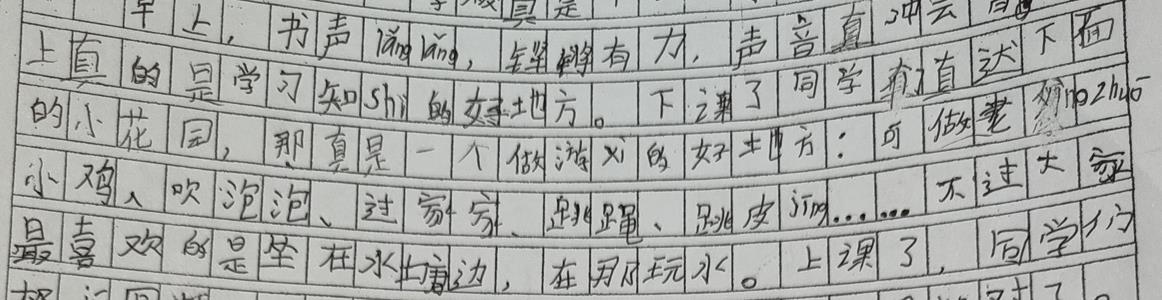 真是
早上，书声lǎng lǎng，铿锵有力，声音直冲云霄
上真的是学习知shi的好地方。下课了同学有了直达下面
的小花园，那真是一个做游xi的好地方：可做老yīng zhuō
小鸡、吹泡泡、过家家、跳蹋、跳皮jīng……不过大家
最喜欢的是坐在水塘边，在那玩水。上课了，同学们